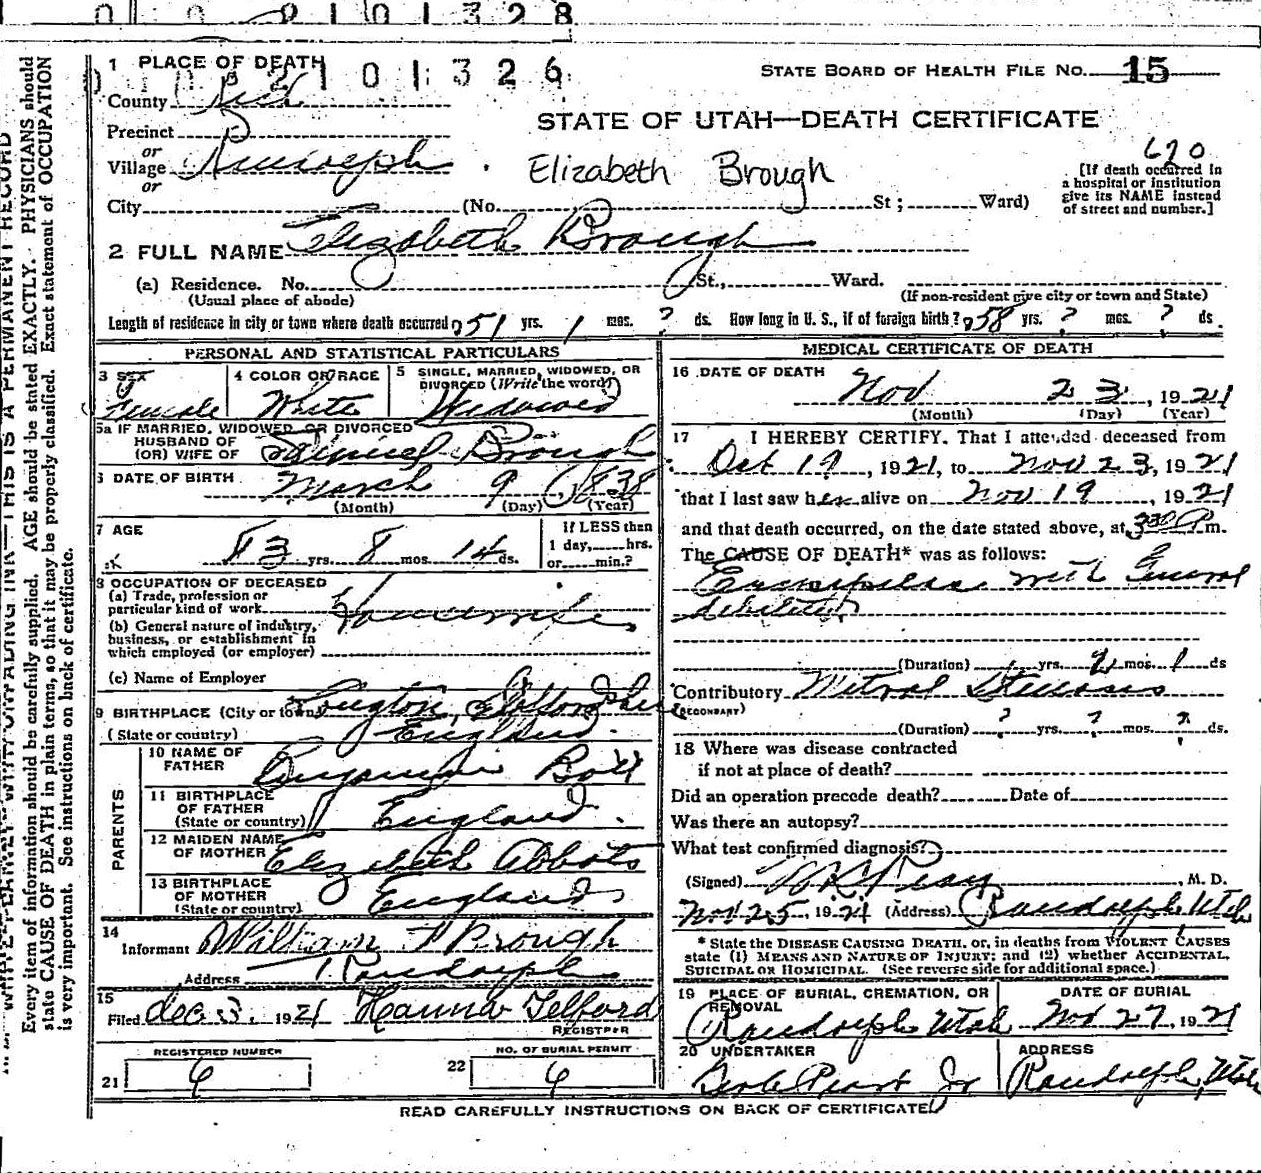 0 0 2 1 0 1 3 2 8
1 PLACE OF DEATH
0 1 0 2 1 0 1 3 2 6
STATE BOARD OF HEALTH FILE NO. 15
County Rich
STATE OF UTAH—DEATH CERTIFICATE
Precinct
or
Village Randolph
Elizabeth Brough
620
[If death occurred in a hospital or institution give its NAME instead of street and number.]
or
City (No. St; Ward)
2 FULL NAME Elizabeth Brough
(a) Residence. No. St., Ward.
(Usual place of abode)
(If non-resident give city or town and State)
Length of residence in city or town where death occurred 51 yrs. 1 mos. ? ds. How long in U. S., if of foreign birth? 58 yrs. ? mos. ? ds.
PERSONAL AND STATISTICAL PARTICULARS
3 SEX
4 COLOR OR RACE
5 SINGLE, MARRIED, WIDOWED, OR DIVORCED (Write the word)
Female White Widowed
5a IF MARRIED, WIDOWED OR DIVORCED
HUSBAND OF
(OR) WIFE OF Samuel Brough
6 DATE OF BIRTH March 9 1838
(Month) (Day) (Year)
7 AGE
83 yrs. 8 mos. 14 ds.
If LESS than
1 day, hrs.
or min.?
8 OCCUPATION OF DECEASED
(a) Trade, profession or
particular kind of work Housewife
(b) General nature of industry,
business, or establishment in
which employed (or employer)
(c) Name of Employer
9 BIRTHPLACE (City or town) Longton, Staffordshire
(State or country) England
PARENTS
10 NAME OF
FATHER Benjamin Bott
11 BIRTHPLACE
OF FATHER
(State or country) England
12 MAIDEN NAME
OF MOTHER Elizabeth Abbots
13 BIRTHPLACE
OF MOTHER
(State or country) England
14
Informant William T Brough
Address Randolph
15
Filed Dec 3, 1921 Hanna Telford
REGISTRAR
REGISTERED NUMBER
21 6
NO. OF BURIAL PERMIT
22 6
MEDICAL CERTIFICATE OF DEATH
16 DATE OF DEATH
Nov 23, 1921
(Month) (Day) (Year)
17 I HEREBY CERTIFY, That I attended deceased from
Oct 19, 1921, to Nov 23, 1921
that I last saw her alive on Nov 19, 1921
and that death occurred, on the date stated above, at 330 A m.
The CAUSE OF DEATH* was as follows:
with General
debility
(Duration) yrs. 2 mos. 1 ds
Contributory Mitral Stenosis
(SECONDARY)
(Duration) ? yrs. ? mos. ? ds.
18 Where was disease contracted
if not at place of death?
Did an operation precede death? Date of
Was there an autopsy?
What test confirmed diagnosis?
(Signed) , M. D.
Nov 25, 1921 (Address) Randolph, Utah
* State the DISEASE CAUSING DEATH, or, in deaths from VIOLENT CAUSES
state (1) MEANS AND NATURE OF INJURY; and (2) whether ACCIDENTAL,
SUICIDAL OR HOMICIDAL. (See reverse side for additional space.)
19 PLACE OF BURIAL, CREMATION, OR REMOVAL
DATE OF BURIAL
Randolph Utah Nov 27, 1921
20 UNDERTAKER
ADDRESS
Jr Randolph, Utah
READ CAREFULLY INSTRUCTIONS ON BACK OF CERTIFICATE
Every item of information should be carefully supplied. AGE should be stated EXACTLY. PHYSICIANS should
state CAUSE OF DEATH in plain terms, so that it may be properly classified. Exact statement of OCCUPATION
is very important. See instructions on back of certificate.